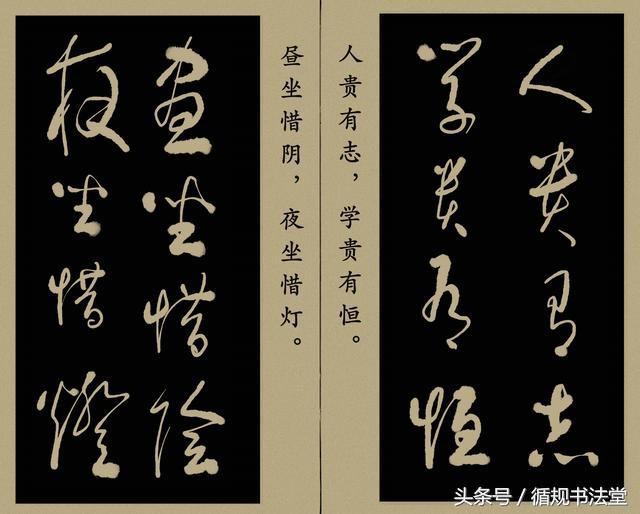 人贵有志
学贵有恒
人贵有志，学贵有恒。
昼坐惜阴，夜坐惜灯。
晝坐惜陰
夜坐惜燈
头条号 / 循规书法堂